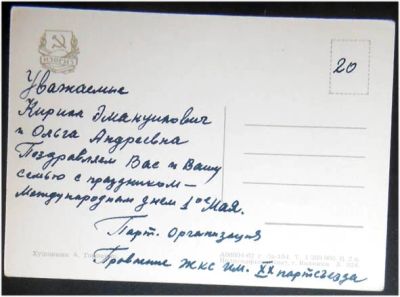 ИЗОГИЗ
20
Уважаемые
Кирилл Эмануилович
и Ольга Андреевна
Поздравляем Вас и Вашу
семью с праздником –
Международным днем 1ое Мая.
Парт. Организация
Правление ЖКС им. XX партсъезда
Художник А.